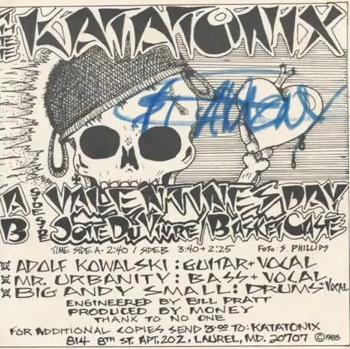 THEE KATATONIX
A SIDE VALENTINES DAY
B SIDE JOIE DU VIVRE/BASKET CASE
TIME SIDE A-2:40 / SIDE B 3:40 + 2:25 FOTO: S. PHILLIPS
ADOLF KOWALSKI: GUITAR + VOCAL
MR. URBANITY: BASS + VOCAL
BIG ANDY SMALL: DRUMS-VOCAL
ENGINEERED BY BILL PRATT
PRODUCED BY MONEY
THANK TO NO ONE
FOR ADDITIONAL COPIES SEND 3.00 TO: KATATONIX
814 8TH ST. APT. 202, LAUREL, MD. 20707 ©1983